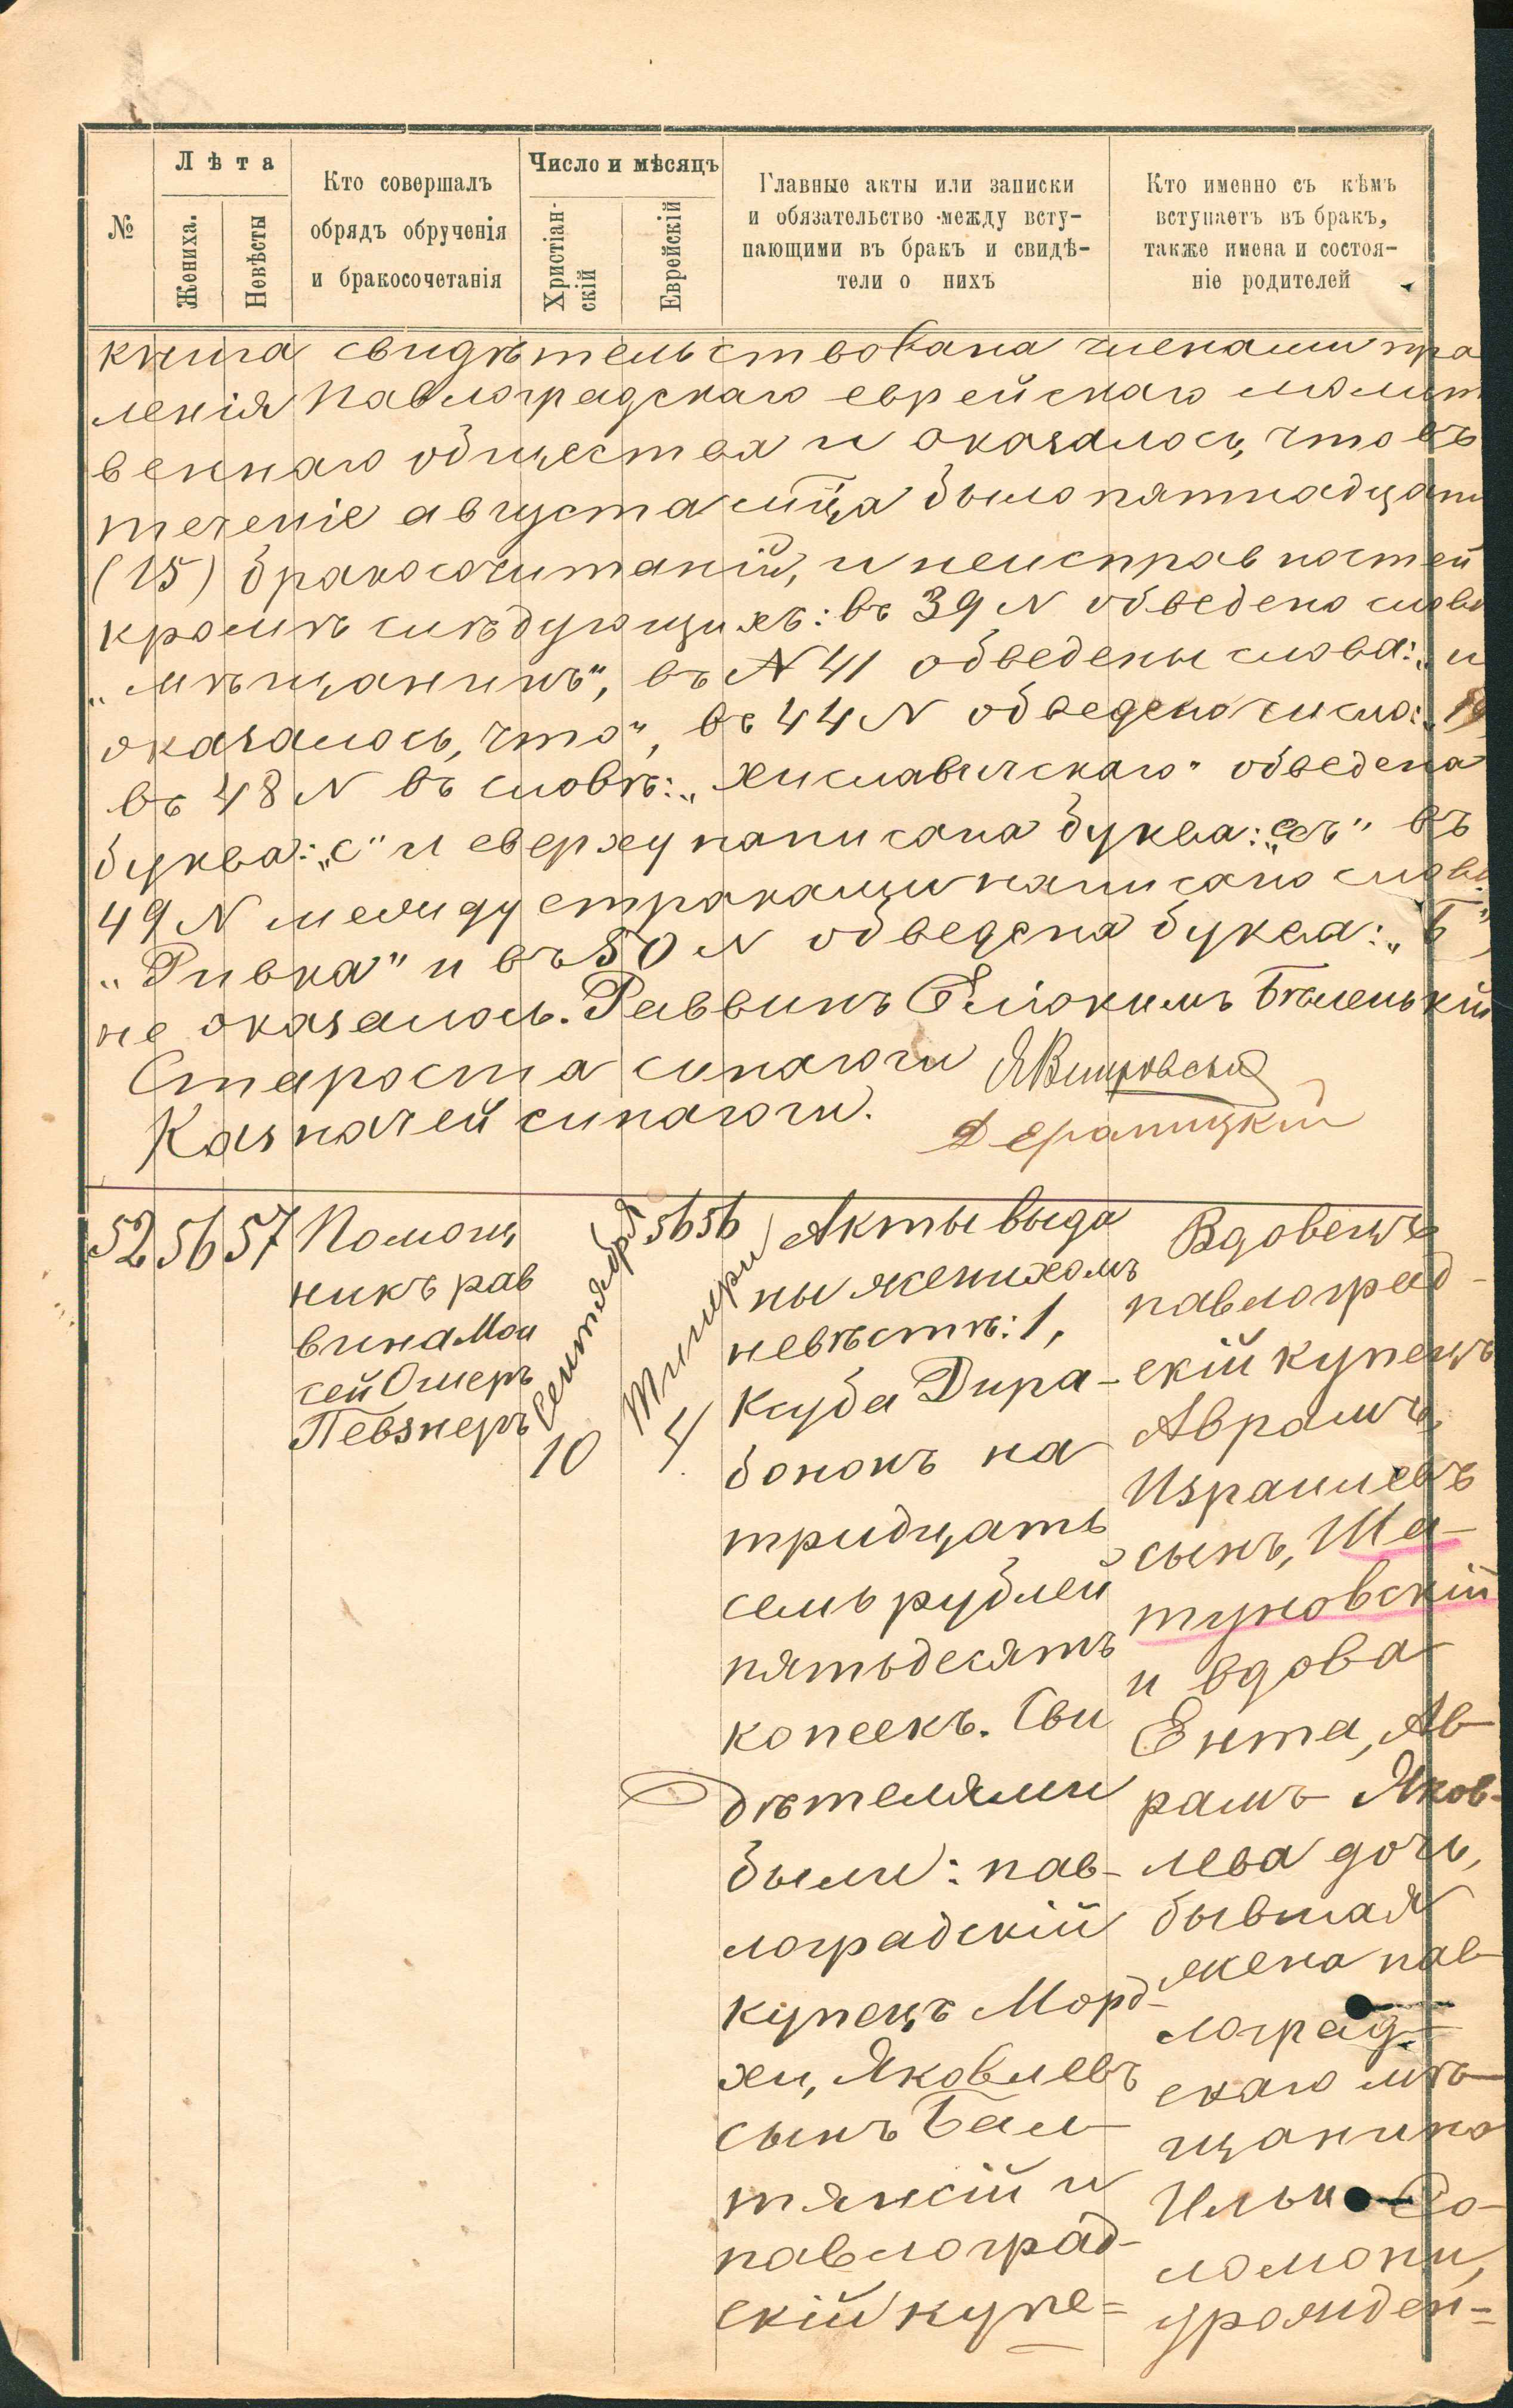 №
Лѣта
Жениха.
Невѣсты
Кто совершалъ
обрядъ обрученія
и бракосочетанія
Число и мѣсяцъ
Христіан-
скій
Еврейскій
Главные акты или записки
и обязательство между всту-
пающими въ бракъ и свидѣ-
тели о нихъ
Кто именно съ кѣмъ
вступаетъ въ бракъ,
также имена и состоя-
ніе родителей
книга свидѣтельствована членами пра
ленія Павлоградскаго еврейскаго молит
веннаго общества и оказалось, что въ
теченіе августа мѣца было пятнадцать
(15) бракосочитаній, и неисправностей
кромѣ слѣдующихъ: въ 39 N обведено слово
„мѣщанинъ", въ N 41 обведены слова: „и
оказалось, что", въ 44 N обведено число: „19
въ 48 N въ словѣ: „хиславичскаго" обведена
буква: „с" и сверху написана буква: въ
49 N между строками написано слово:
„Ривка" и въ 50 N обведена буква: „Б",
не оказалось. Раввинъ Еліокимъ Бѣленькій
Староста синагоги
Казначей синагоги.
52
56
57
Помощ
никъ рав
вина Мои
сей Ошеръ
Певзнеръ
Сентября
10
5656
Тишри
4
Акты выда
ны женихомъ
невѣстѣ: 1,
Ксуба Дира-
бононъ на
тридцать
семь рублей
пятьдесятъ
копеекъ. Сви
дѣтелями
были: пав-
лоградскій
купецъ Морд-
хи, Яковлевъ
сынъ Бал-
тянскій и
павлоград-
скій купе=
Вдовецъ
павлоград-
скій купецъ
Аврамъ,
Израилевъ
сынъ, Ша-
туновскій
и вдова
Ента, Ав-
рамъ Яков-
лева дочь,
бывшая
жена пав-
лоград-
скаго мѣ-
щанина
Ильи Со-
ломони,
урожден=